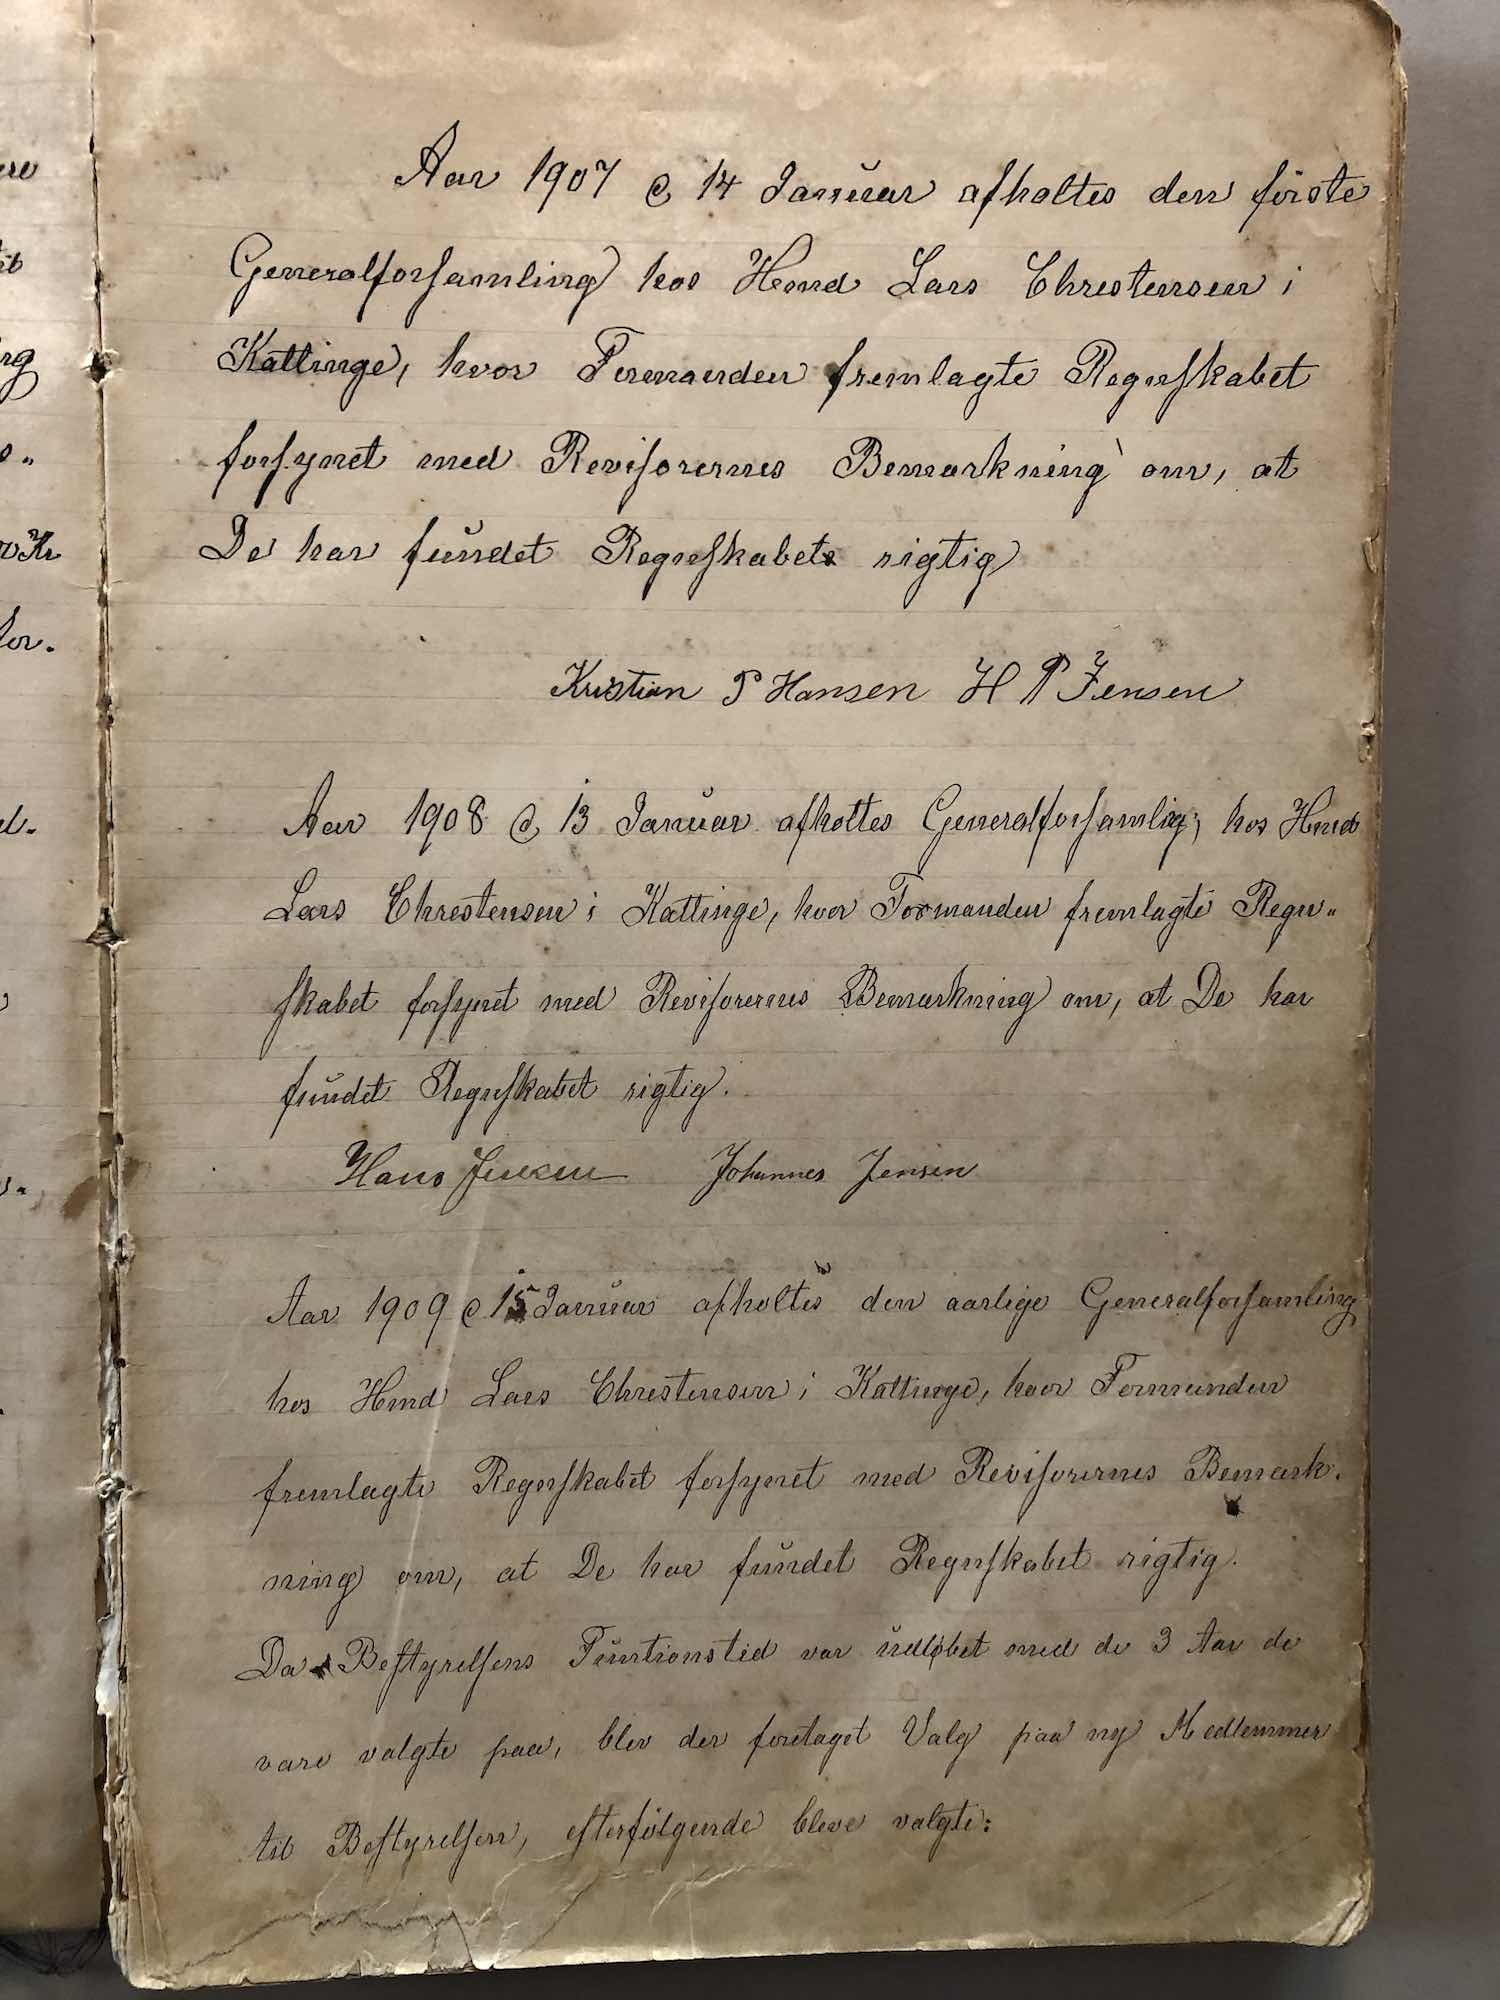 Aar 1907 d 14 Januar afholtes den första
Generalforsamling hos Hmd Lars Chrestensen i
Kattinge, hvor Formanden fremlagte Regnskabet
forsynet med Revisorernes Bemærkning om, at
De har fundet Regnskabet rigtig
Kristian P Hansen H P Jensen
Aar 1908 d, 13 Januar afholtes Generalforsamlig; hos Hmd
Lars Chrestensen i Kattinge, hvor Formanden fremlagte Regn„
skabet forsynet med Revisorernes Bemærkning om, at De har
fundet Regnskabet rigtig.
Hans Jensen Johannes Jensen
Aar 1909 d 15 Januar afholtes den aarlige Generalforsamling
hos Hmd Lars Chrestensen i Kattinge, hvor Formanden
fremlagte Regnskabet forsynet med Revisorernes Bemærk.
ning om, at De har fundet Regnskabet rigtig.
Da Bestyrelsens Funtionstid var udløbet med de 3 Aar de
vare valgte paa, blev der foretaget Valg paa ny Medlemmer
til Bestyrelsen, efterfølgende bleve valgte: